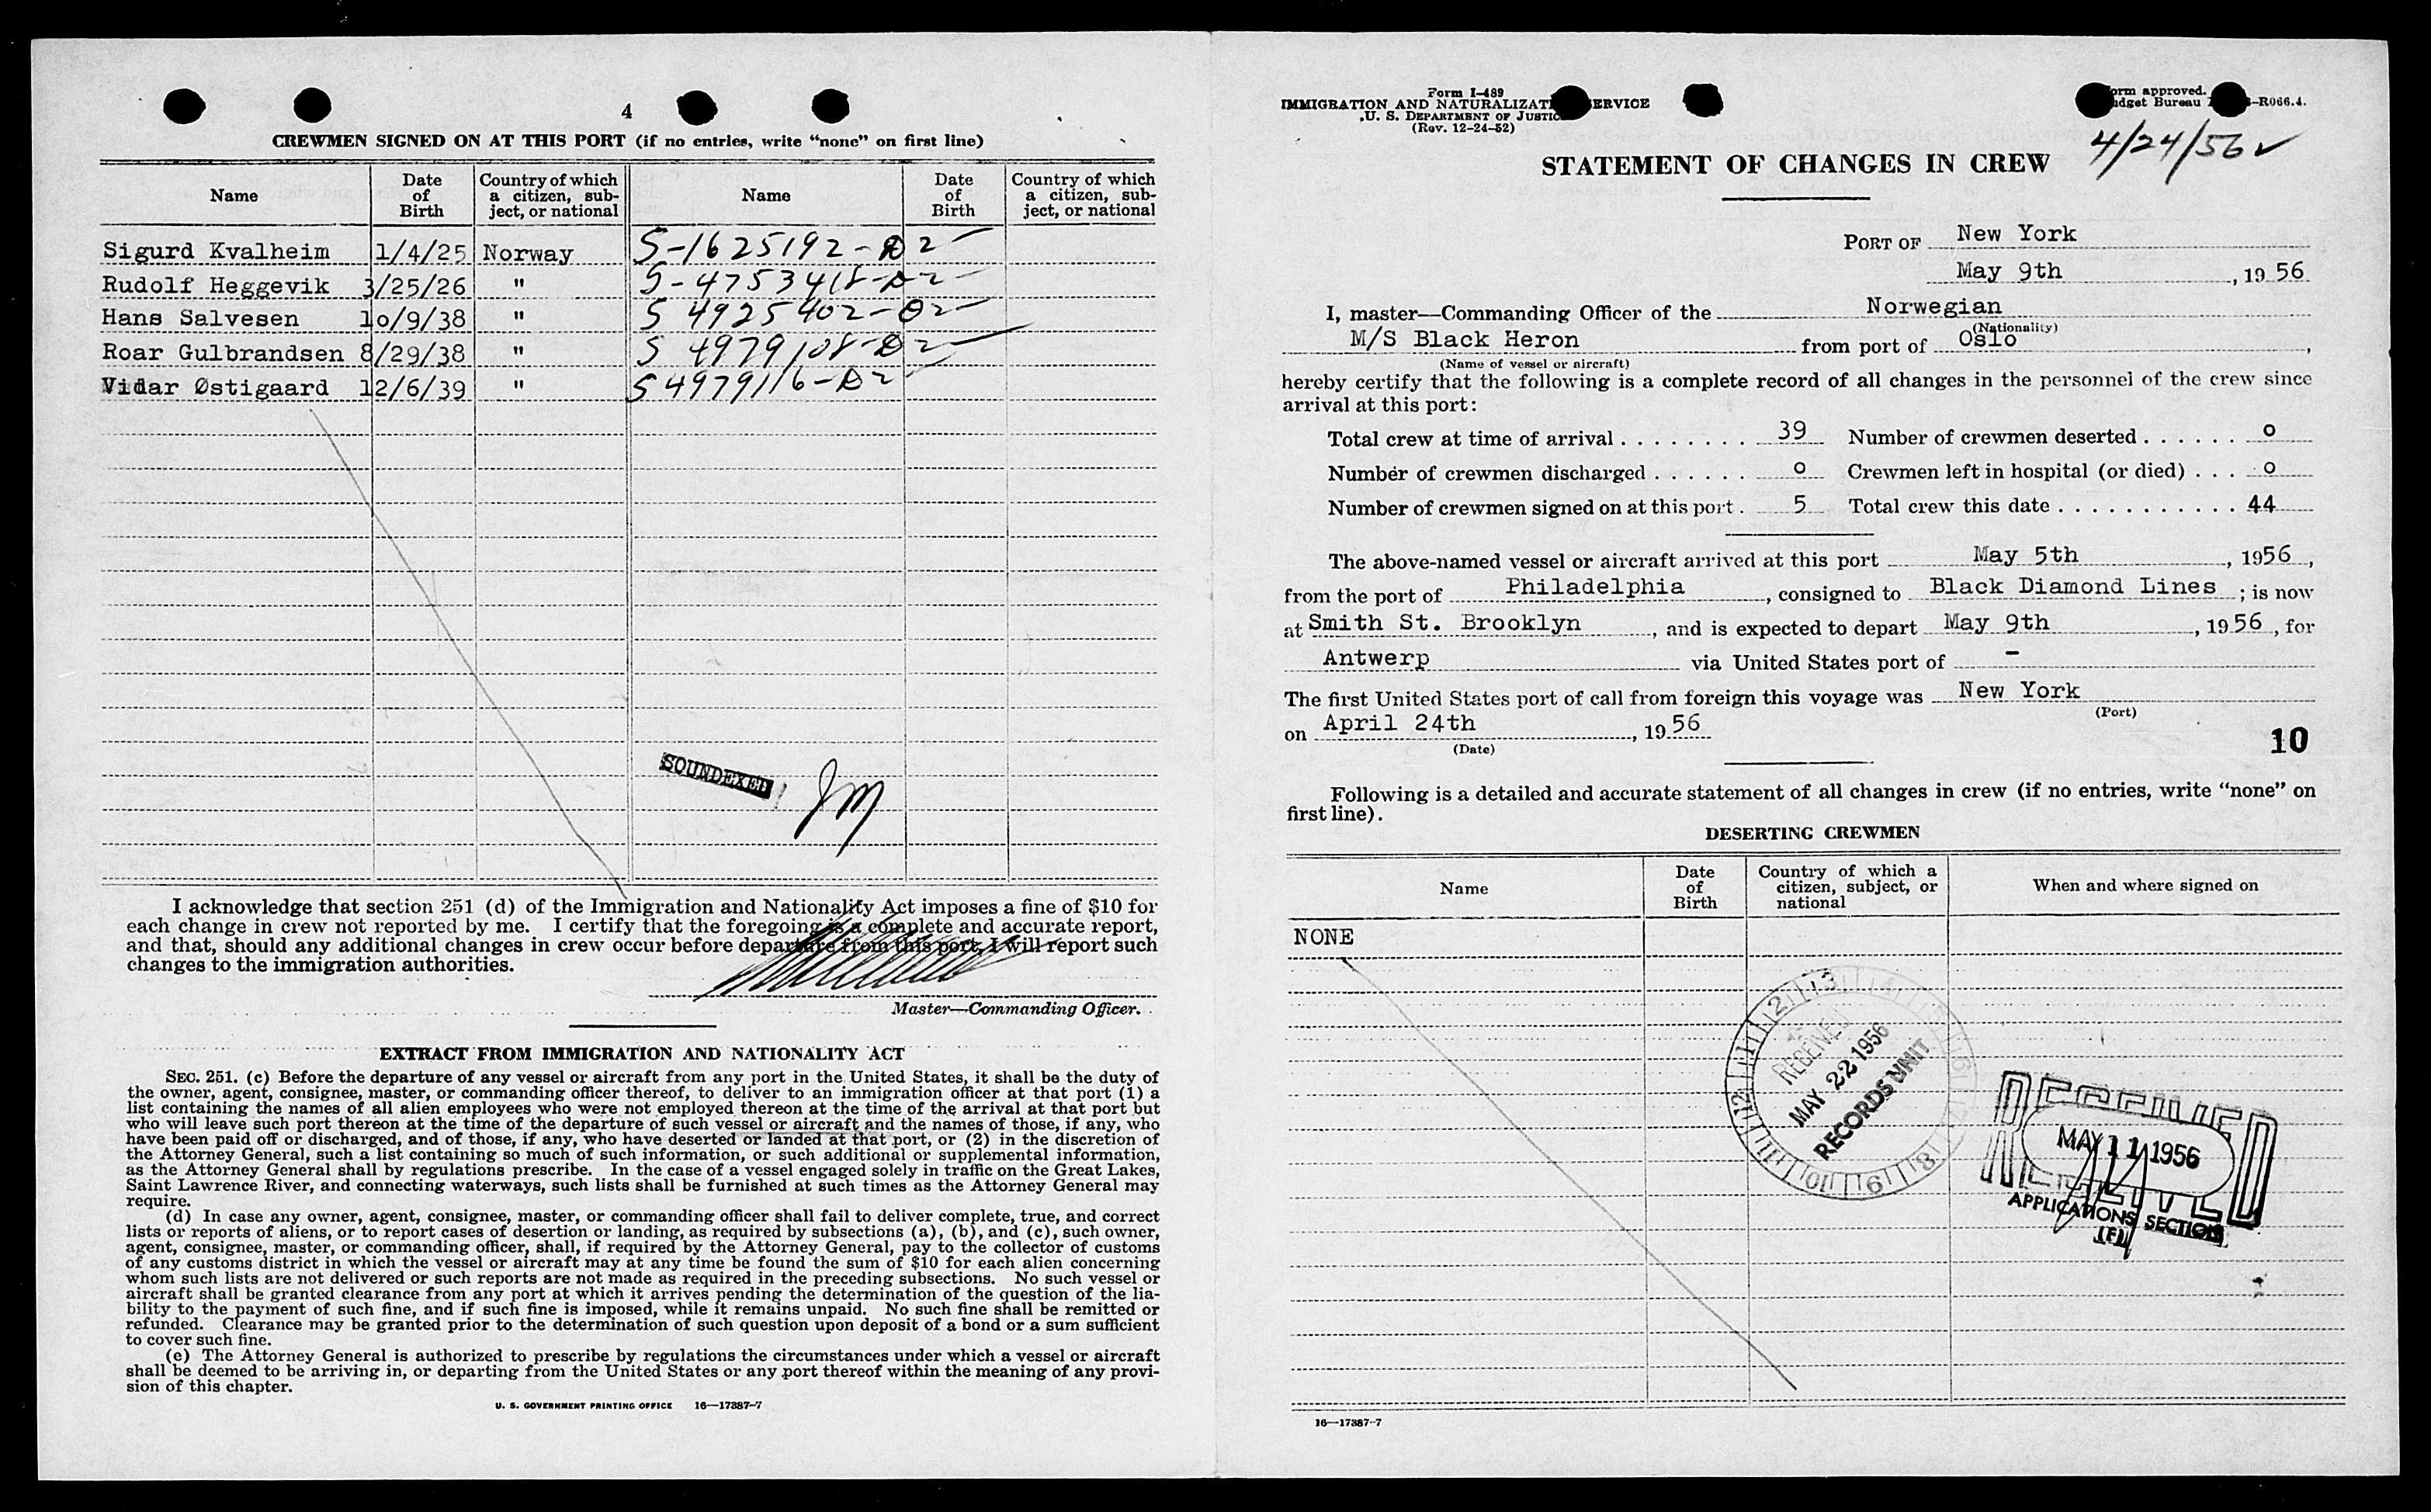 4
CREWMEN SIGNED ON AT THIS PORT (if no entries, write “none” on first line)
Name Date of Birth Country of which a citizen, sub- ject, or national Name Date of Birth Country of which a citizen, sub- ject, or national
Sigurd Kvalheim 1/4/25 Norway S-1625192-D2
Rudolf Heggevik 3/25/26 " S-4753418-D2
Hans Salvesen 1o/9/38 " S 4925402-D2
Roar Gulbrandsen 8/29/38 " S 4979108-D2
Vidar Østigaard 12/6/39 " S 4979116-D2
SOUNDEXED JM
I acknowledge that section 251 (d) of the Immigration and Nationality Act imposes a fine of $10 for
each change in crew not reported by me. I certify that the foregoing is a complete and accurate report,
and that, should any additional changes in crew occur before departure from this port, I will report such
changes to the immigration authorities.
Master—Commanding Officer.
EXTRACT FROM IMMIGRATION AND NATIONALITY ACT
SEC. 251. (c) Before the departure of any vessel or aircraft from any port in the United States, it shall be the duty of
the owner, agent, consignee, master, or commanding officer thereof, to deliver to an immigration officer at that port (1) a
list containing the names of all alien employees who were not employed thereon at the time of the arrival at that port but
who will leave such port thereon at the time of the departure of such vessel or aircraft and the names of those, if any, who
have been paid off or discharged, and of those, if any, who have deserted or landed at that port, or (2) in the discretion of
the Attorney General, such a list containing so much of such information, or such additional or supplemental information,
as the Attorney General shall by regulations prescribe. In the case of a vessel engaged solely in traffic on the Great Lakes,
Saint Lawrence River, and connecting waterways, such lists shall be furnished at such times as the Attorney General may
require.
(d) In case any owner, agent, consignee, master, or commanding officer shall fail to deliver complete, true, and correct
lists or reports of aliens, or to report cases of desertion or landing, as required by subsections (a), (b), and (c), such owner,
agent, consignee, master, or commanding officer, shall, if required by the Attorney General, pay to the collector of customs
of any customs district in which the vessel or aircraft may at any time be found the sum of $10 for each alien concerning
whom such lists are not delivered or such reports are not made as required in the preceding subsections. No such vessel or
aircraft shall be granted clearance from any port at which it arrives pending the determination of the question of the lia-
bility to the payment of such fine, and if such fine is imposed, while it remains unpaid. No such fine shall be remitted or
refunded. Clearance may be granted prior to the determination of such question upon deposit of a bond or a sum sufficient
to cover such fine.
(e) The Attorney General is authorized to prescribe by regulations the circumstances under which a vessel or aircraft
shall be deemed to be arriving in, or departing from the United States or any port thereof within the meaning of any provi-
sion of this chapter.
U. S. GOVERNMENT PRINTING OFFICE 16—17387-7
Form I-489
IMMIGRATION AND NATURALIZATI ERVICE
U. S. DEPARTMENT OF JUSTIC
(Rev. 12-24-52)
orm approved.
dget Bureau -R066.4.
4/24/56 ✓
STATEMENT OF CHANGES IN CREW
PORT OF New York
May 9th, 1956
I, master—Commanding Officer of the Norwegian
(Nationality)
M/S Black Heron from port of Oslo,
(Name of vessel or aircraft)
hereby certify that the following is a complete record of all changes in the personnel of the crew since
arrival at this port:
Total crew at time of arrival . . . . . . . . 39 Number of crewmen deserted . . . . . . o
Number of crewmen discharged . . . . . . o Crewmen left in hospital (or died) . . . o
Number of crewmen signed on at this port . 5 Total crew this date . . . . . . . . . . . 44
The above-named vessel or aircraft arrived at this port May 5th, 1956,
from the port of Philadelphia, consigned to Black Diamond Lines; is now
at Smith St. Brooklyn, and is expected to depart May 9th, 1956, for
Antwerp via United States port of -
The first United States port of call from foreign this voyage was New York
(Port)
on April 24th, 1956
(Date)
10
Following is a detailed and accurate statement of all changes in crew (if no entries, write “none” on
first line).
DESERTING CREWMEN
Name Date of Birth Country of which a citizen, subject, or national When and where signed on
NONE
RECEIVED
MAY 22 1956
RECORDS UNIT
RECEIVED
MAY 11 1956
APPLICATIONS SECTION
16—17387-7